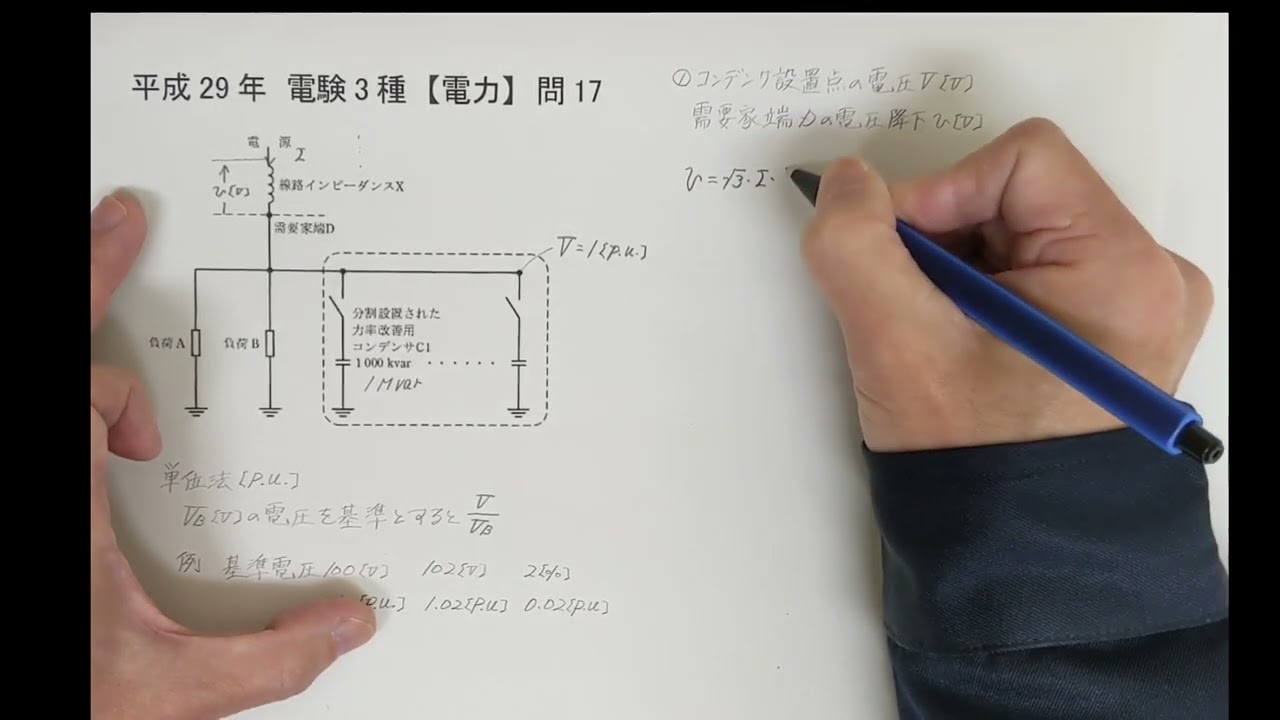 平成29年 電験3種【電力】 問17
電 源
I
v[V]
線路インピーダンスX
需要家端D
V=1[p.u.]
負荷A
負荷B
分割設置された
力率改善用
コンデンサC1
1000 kvar ・・・・・・
1Mvar
単位法[P.u.]
VB[V]の電圧を基準とすると V/VB
例 基準電圧100[V] 102[V] 2[%]
[p.u.] 1.02[P.u] 0.02[p.u]
①コンデンサ設置点の電圧V[V]
需要家端Dの電圧降下v[V]
v=√3・I・